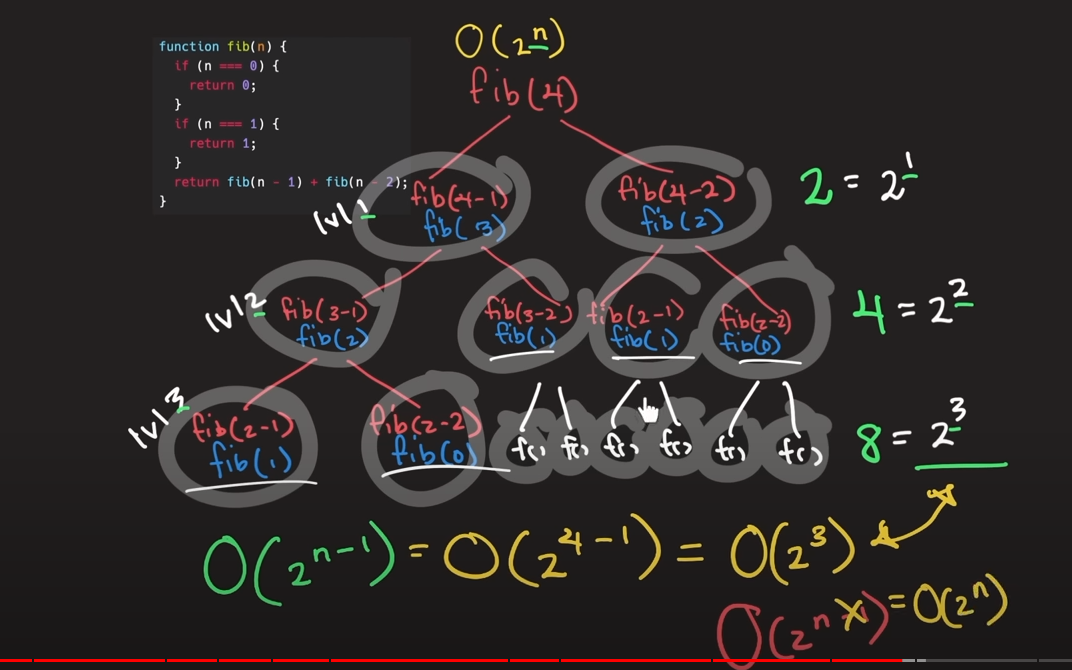 O(2ⁿ)
function fib(n) {
if (n === 0) {
return 0;
}
if (n === 1) {
return 1;
}
return fib(n - 1) + fib(n - 2);
}
fib(4)
lvl 1
fib(4-1)
fib(3)
fib(4-2)
fib(2)
2 = 2¹
lvl 2
fib(3-1)
fib(2)
fib(3-2)
fib(1)
fib(2-1)
fib(1)
fib(2-2)
fib(0)
4 = 2²
lvl 3
fib(2-1)
fib(1)
fib(2-2)
fib(0)
f( ) f( ) f( ) f( ) f( ) f( )
8 = 2³
O(2ⁿ⁻¹) = O(2⁴⁻¹) = O(2³)
O(2ⁿ⁻¹) = O(2ⁿ)